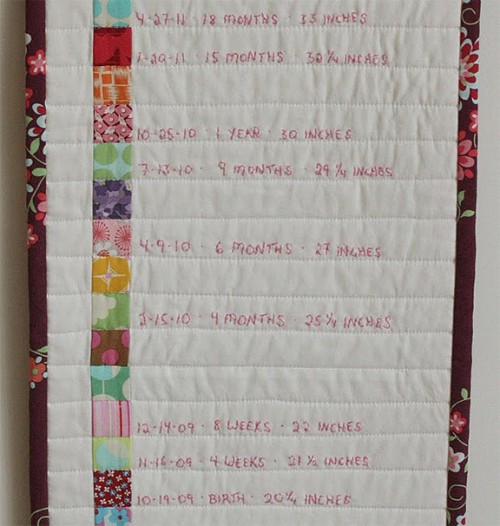 4-27-11 · 18 MONTHS · 33 INCHES
1-20-11 · 15 MONTHS · 32 1/4 INCHES
10-25-10 · 1 YEAR · 30 INCHES
7-13-10 · 9 MONTHS · 29 1/4 INCHES
4-9-10 · 6 MONTHS · 27 INCHES
2-15-10 · 4 MONTHS · 25 1/4 INCHES
12-14-09 · 8 WEEKS · 22 INCHES
11-16-09 · 4 WEEKS · 21 1/2 INCHES
10-19-09 · BIRTH · 20 1/4 INCHES